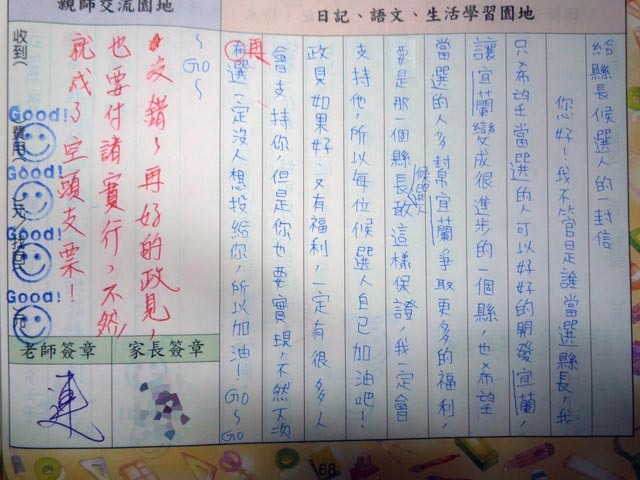 日記、語文、生活學習園地
給縣長候選人的一封信
您好！我不管是誰當選縣長，我
只希望當選的人可以好好的開發宜蘭，
讓宜蘭變成很進步的一個縣，也希望
當選的人多幫宜蘭爭取更多的福利，
要是那一個縣長候選人敢這樣保證，我一定會
支持他，所以每位候選人自己加油吧！
政見如果好，又有福利，一定有很多人
會支持你，但是你也要實現，不然下次
再選一定沒人想投給你，所以加油！GO~GO
~GO~
親師交流園地
沒錯，再好的政見，
也要付諸實行，不然，
就成了空頭支票！
收到(
費用)
元
Good!
Good!
Good!
Good!
家長簽章
老師簽章
連
68